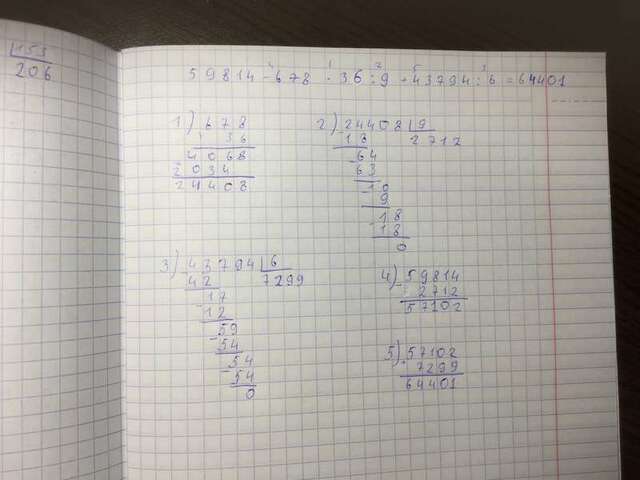 153
206
59814 - 678 · 36 : 9 + 43794 : 6 = 64401
4 1 2 5 3
1) 678
36
4068
2034
24408
2) 24408 | 9
18 2712
64
63
10
9
18
18
0
3) 43794 | 6
42 7299
17
12
59
54
54
54
0
4) 59814
2712
57102
5) 57102
7299
64401